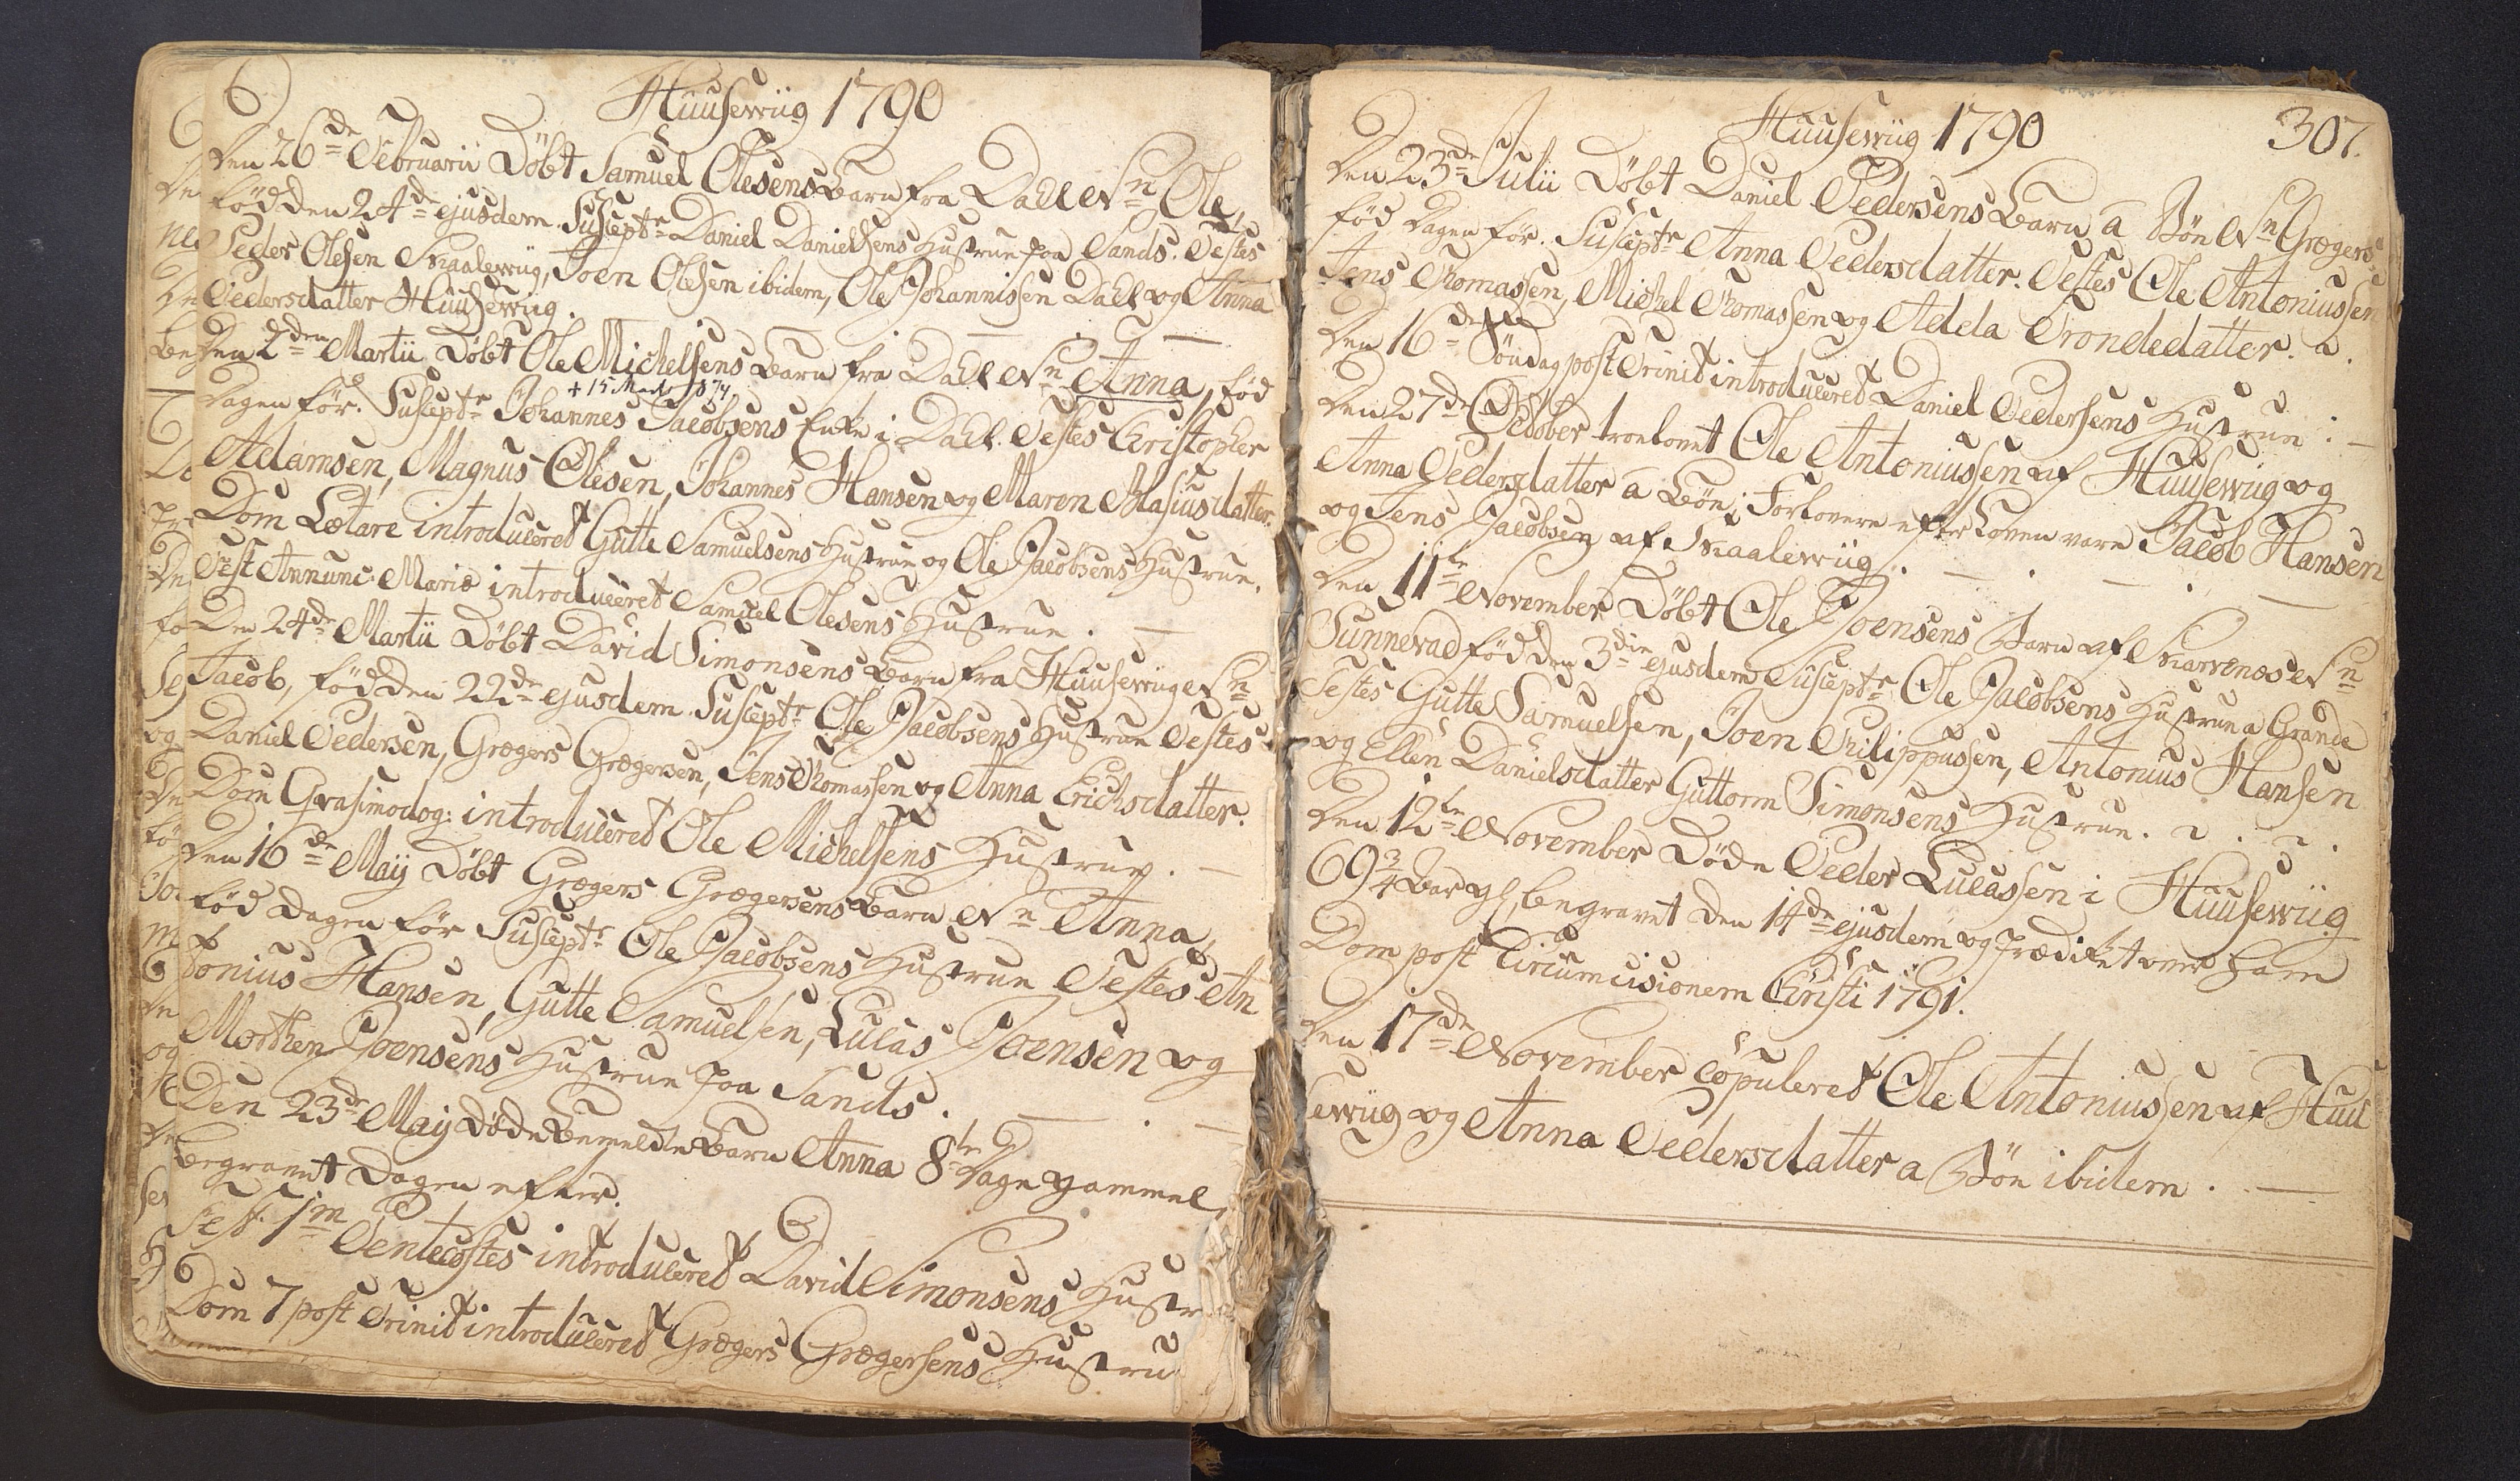 Huusewiig 1790
Den 26de Februarii Döbt Samuel Olesens Barn fra Dahl Nn Ole,
föd den 24de ejusdem. Susceptr Daniel Danielsens Hustrue paa Sands. Testes
Peder Olesen Skaalewiig, Joen Olesen ibidem, Ole Johannissen Dahl og Anna
Pedersdatter Huusewiig.
Den 2den Martii Döbt Ole Michelsens Barn fra Dahl Nn Anna, föd
+ 15 Marts 1874
Dagen för. Susceptr Johannes Jacobsens Enke i Dahl. Testes Christopher
Adamsen, Magnus Olesen, Johannes Hansen og Maren Clasiusdatter.
Dom Lætare introduceret Gutte Samuelsens Hustrue og Ole Jacobsens Hustrue.
Fest Annunc: Mariæ introduceret Samuel Olesens Hustrue. —
Den 24de Martii Döbt David Simonsens Barn fra Huusewiig Nn
Jacob, föd den 22de ejusdem. Susceptr Ole Jacobsens Hustrue Testes
Daniel Pedersen, Grægers Grægersen, Jens Thomassen og Anna Erichsdatter.
Dom Qvasimodog: introduceret Ole Michelsens Hustrue. —
Den 16de Maij Döbt Grægers Grægersens Barn Nn Anna,
föd Dagen för Susceptr Ole Jacobsens Hustrue Testes An
tonius Hansen, Gutte Samuelsen, Lucas Joensen og
Morthen Joensens Hustrue paa Sands. — . —
Den 23de Maij döde bemeldte Barn Anna 8te Dage gammel,
begravet Dagen efter.
Fest. 1m Pentecostes introduceret David Simonsens Hustr
Dom 7 post Trinit introduceret Grægers Grægersens Hustru
Huusewiig 1790 307.
Den 23de Julii Döbt Daniel Pedersens Barn a Bön Nn Grægers
föd Dagen för. Susceptr Anna Pedersdatter. Testes Ole Antoniussen
Jens Thomassen, Michel Thomassen og Adela Trondedatter.
Den 16de Söndag post Trinit introduceret Daniel Pedersens Hustrue. —
Den 27de October trolovet Ole Antoniussen af Huusewiig og
Anna Pedersdatter a Bön; Forlovere efter Loven vare Jacob Hansen
og Jens Jacobsen af Skaalewiig. — . — . —
Den 11te November Döbt Ole Joensens Barn af Skarvenæs Nn
Sunneva föd den 3die ejusdem Susceptr Ole Jacobsens Hustrue a Grande
Testes Gutte Samuelsen, Joen Philippussen, Antonius Hansen
og Ellen Danielsdatter Guttorm Simonsens Hustrue.
Den 12te November Döde Peder Lucassen i Huusewiig
69¾ Aar gl, begravet den 14de ejusdem og prædiket over ham
Dom post Circumcisionem Christi 1791.
Den 17de November copuleret Ole Antoniussen af Huu
sewiig og Anna Pedersdatter a Bön ibidem. —